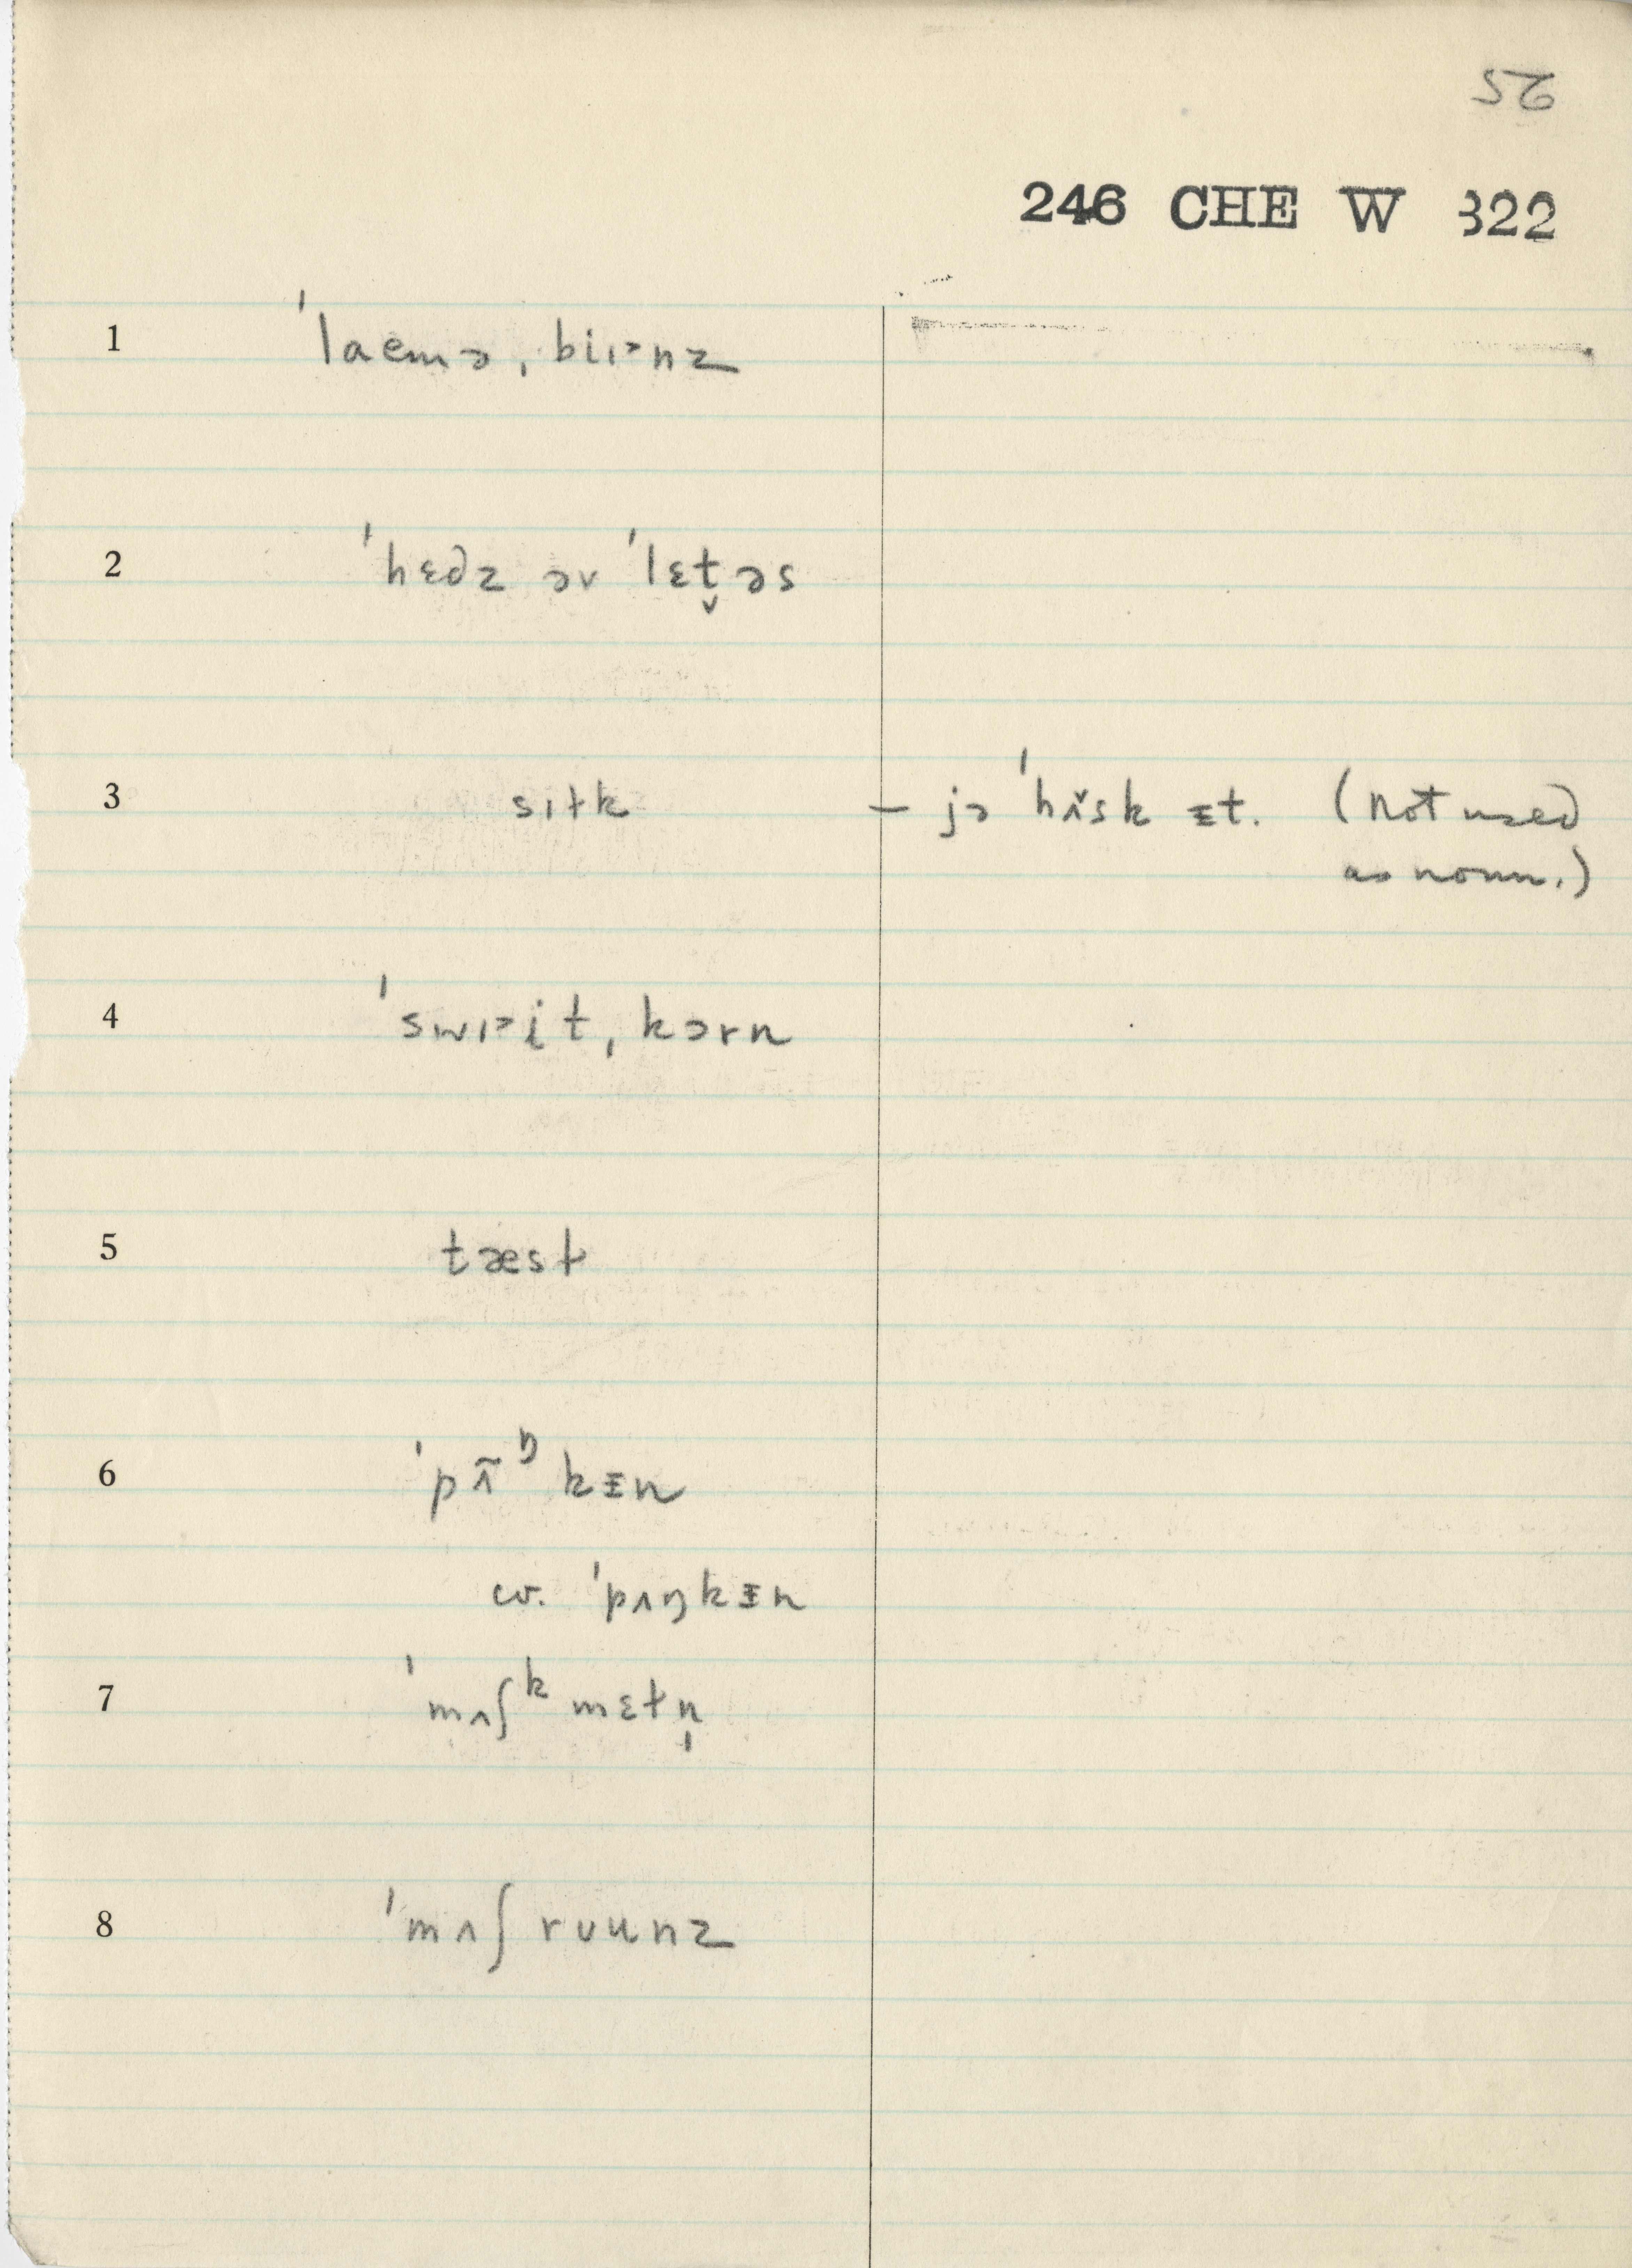 25
246 CHE W 322
1 ˈlaemə ˌbiɪ˃nz
2 ˈhɛdz əv ˈlɛt̬əs
3 sɪɫk – jə ˈhʌ̆sk ᵻt. (not used
as noun.)
4 ˈswɪ˃it ˌkɔrn
5 tæsɫ
6 ˈpʌ̃ᵑkᵻn
cv. ˈpʌŋkᵻn
7 ˈmʌʃᵏmɛɫn̩
8 ˈmʌʃrʊunz